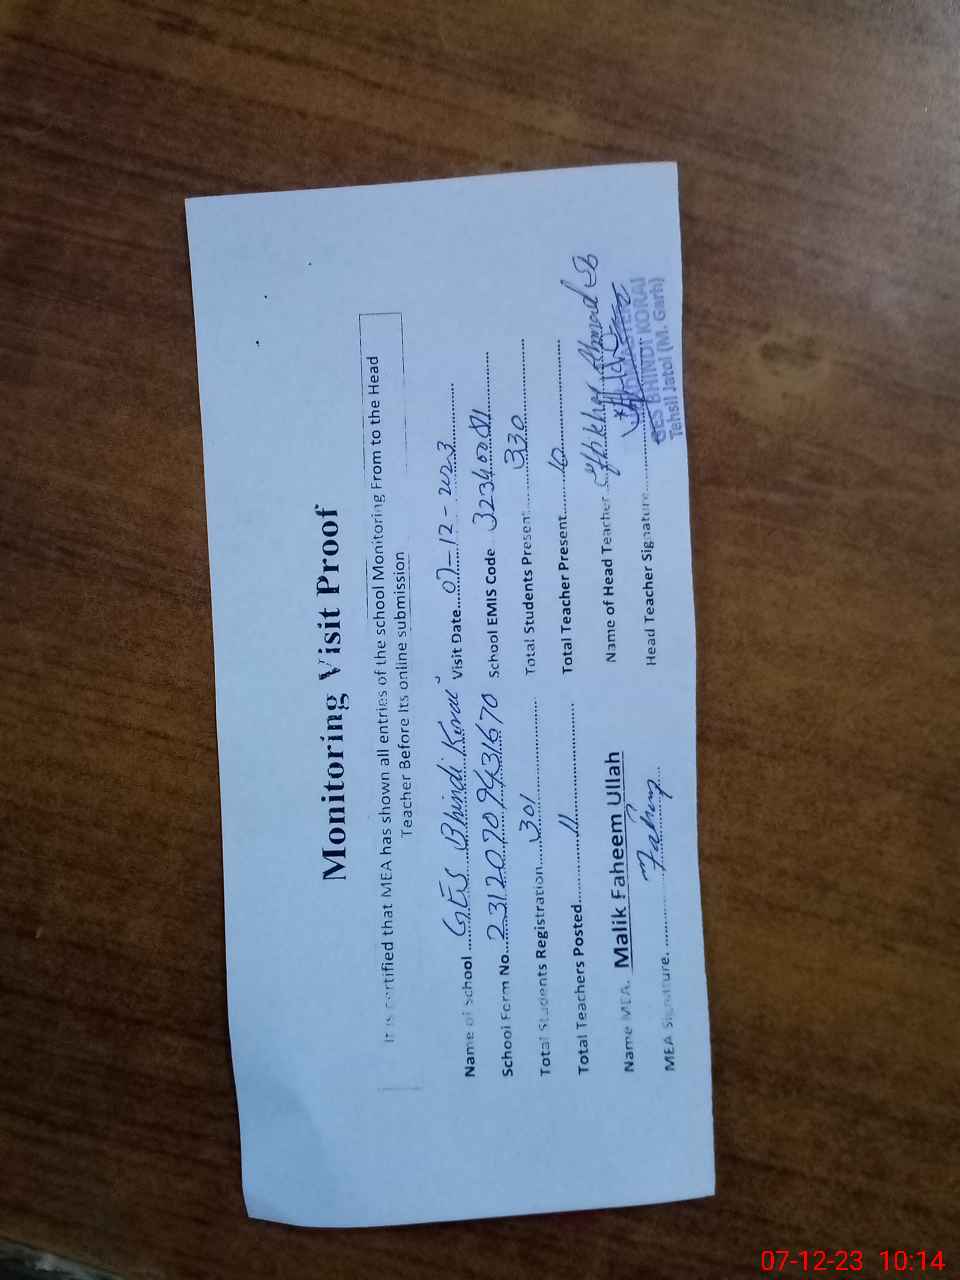 Monitoring Visit Proof
It is certified that MEA has shown all entries of the school Monitoring From to the Head
Teacher Before Its online submission
Name of School ......GES Bhindi Korai Visit Date.......07-12-2023
School Form No....23120709431670 School EMIS Code 32340081
Total Students Registration......301 Total Students Present......330
Total Teachers Posted......11 Total Teacher Present......10
Name MEA. Malik Faheem Ullah Name of Head Teacher Iftikhar Ahmad
MEA Signature. Fahim Head Teacher Signature
GES BHINDI KORAI
Tehsil Jatoi (M. Garh)
07-12-23 10:14